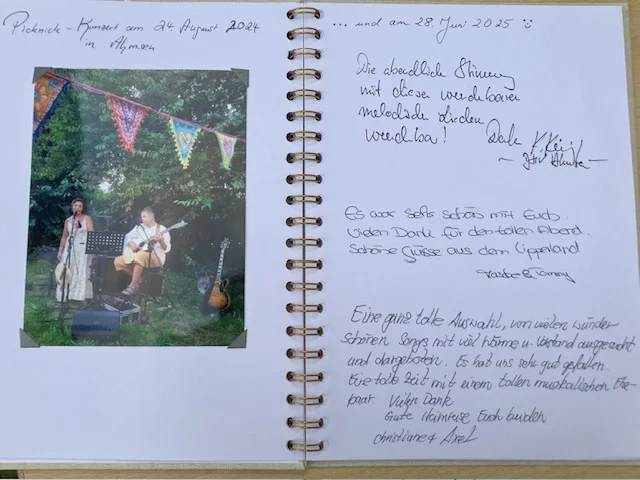 Picknick-Konzert am 24. August 2024
in Ahmsen
... und am 28. Juni 2025
Die abendliche Stimmung
mit dieser wunderbaren
melodischen
wunderbar! Danke
Es war sehr schön mit Euch.
Vielen Dank für den tollen Abend.
Schöne Grüsse aus dem Lipperland
& Tommy
Eine ganz tolle Auswahl, von vielen wunder
schönen Songs mit viel Wärme u. Verstand ausgesucht
und dargeboten. Es hat uns sehr gut gefallen.
Eine tolle Zeit mit einem tollen musikalischen Ehe-
paar. Vielen Dank
Gute Heimreise Euch beiden
Christiane + Axel